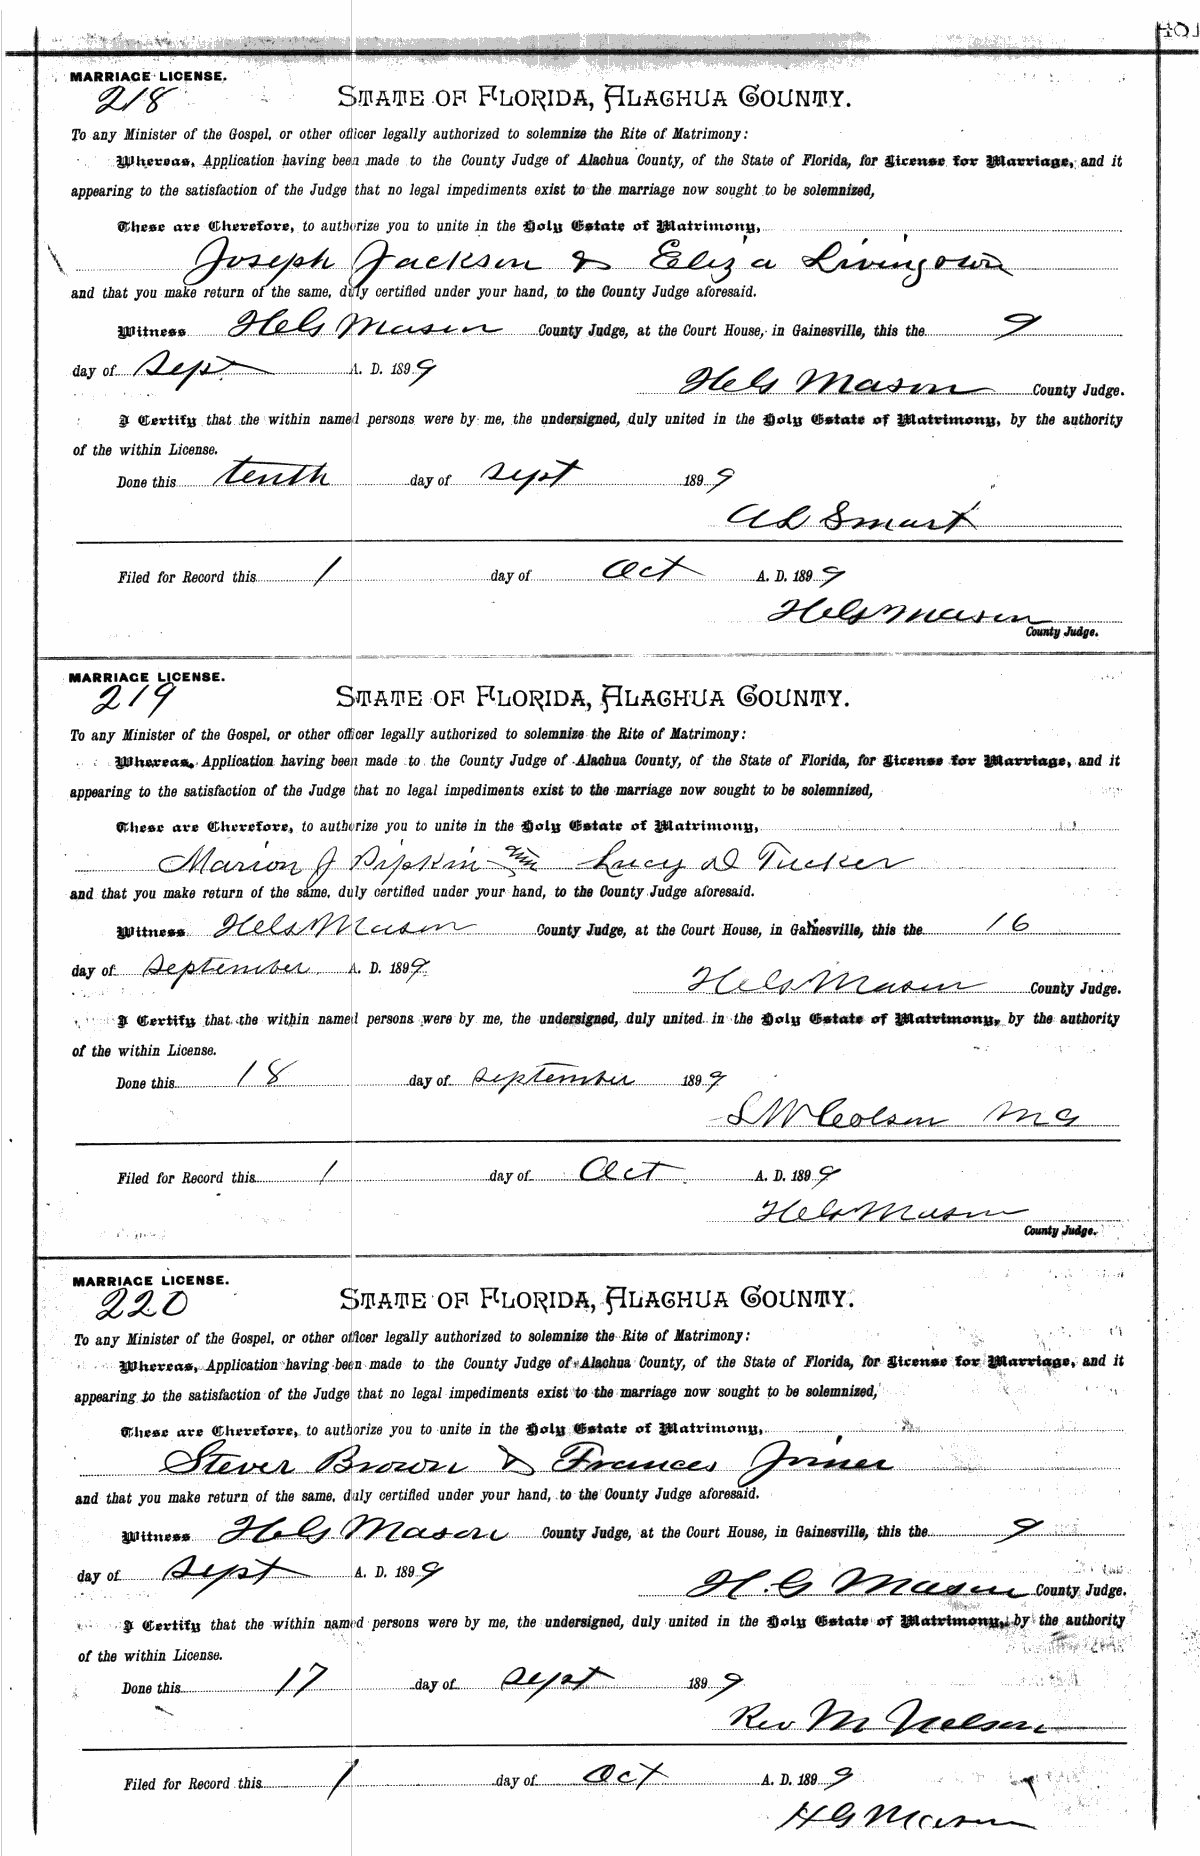 MARRIAGE LICENSE.
218
STATE OF FLORIDA, ALACHUA COUNTY.
To any Minister of the Gospel, or other officer legally authorized to solemnize the Rite of Matrimony:
Whereas, Application having been made to the County Judge of Alachua County, of the State of Florida, for License for Marriage, and it
appearing to the satisfaction of the Judge that no legal impediments exist to the marriage now sought to be solemnized,
These are Therefore, to authorize you to unite in the Holy Estate of Matrimony,
Joseph Jackson & Eliza
and that you make return of the same, duly certified under your hand, to the County Judge aforesaid.
Witness H G Mason County Judge, at the Court House, in Gainesville, this the 9
day of Sept A. D. 1899
H G Mason County Judge.
I Certify that the within named persons were by me, the undersigned, duly united in the Holy Estate of Matrimony, by the authority
of the within License.
Done this tenth day of Sept 1899
A L Smart
Filed for Record this 1 day of Oct A. D. 1899
H G Mason
County Judge.
MARRIAGE LICENSE.
219
STATE OF FLORIDA, ALACHUA COUNTY.
To any Minister of the Gospel, or other officer legally authorized to solemnize the Rite of Matrimony:
Whereas, Application having been made to the County Judge of Alachua County, of the State of Florida, for License for Marriage, and it
appearing to the satisfaction of the Judge that no legal impediments exist to the marriage now sought to be solemnized,
These are Therefore, to authorize you to unite in the Holy Estate of Matrimony,
Marion J Pipkin Lucy D Tucker
and that you make return of the same, duly certified under your hand, to the County Judge aforesaid.
Witness H G Mason County Judge, at the Court House, in Gainesville, this the 16
day of September A. D. 1899
H G Mason County Judge.
I Certify that the within named persons were by me, the undersigned, duly united in the Holy Estate of Matrimony, by the authority
of the within License.
Done this 18 day of September 1899
L W Colson M G
Filed for Record this 1 day of Oct A. D. 1899
H G Mason
County Judge.
MARRIAGE LICENSE.
220
STATE OF FLORIDA, ALACHUA COUNTY.
To any Minister of the Gospel, or other officer legally authorized to solemnize the Rite of Matrimony:
Whereas, Application having been made to the County Judge of Alachua County, of the State of Florida, for License for Marriage, and it
appearing to the satisfaction of the Judge that no legal impediments exist to the marriage now sought to be solemnized,
These are Therefore, to authorize you to unite in the Holy Estate of Matrimony,
Stever Brown & Frances Joiner
and that you make return of the same, duly certified under your hand, to the County Judge aforesaid.
Witness H G Mason County Judge, at the Court House, in Gainesville, this the 9
day of Sept A. D. 1899
H. G Mason County Judge.
I Certify that the within named persons were by me, the undersigned, duly united in the Holy Estate of Matrimony, by the authority
of the within License.
Done this 17 day of Sept 1899
Rev M Nelson
Filed for Record this 1 day of Oct A. D. 1899
H G Mason